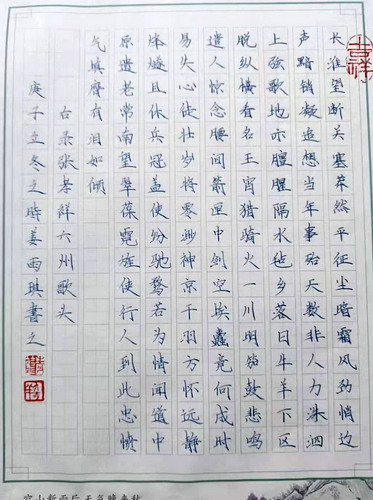 长淮望断关塞莽然平征尘暗霜风劲悄边
声黯销凝追想当年事殆天数非人力洙泗
上弦歌地亦膻腥隔水毡乡落日牛羊下区
脱纵横看名王宵猎骑火一川明笳鼓悲鸣
遣人惊念腰间箭匣中剑空埃蠹竟何成时
易失心徒壮岁将零渺神京干羽方怀远静
烽燧且休兵冠盖使纷驰骛若为情闻道中
原遗老常南望翠葆霓旌使行人到此忠愤
气填膺有泪如倾
右录张孝祥六州歌头
庚子立冬之时姜雨琪书之
空山新雨后 天气晚来秋